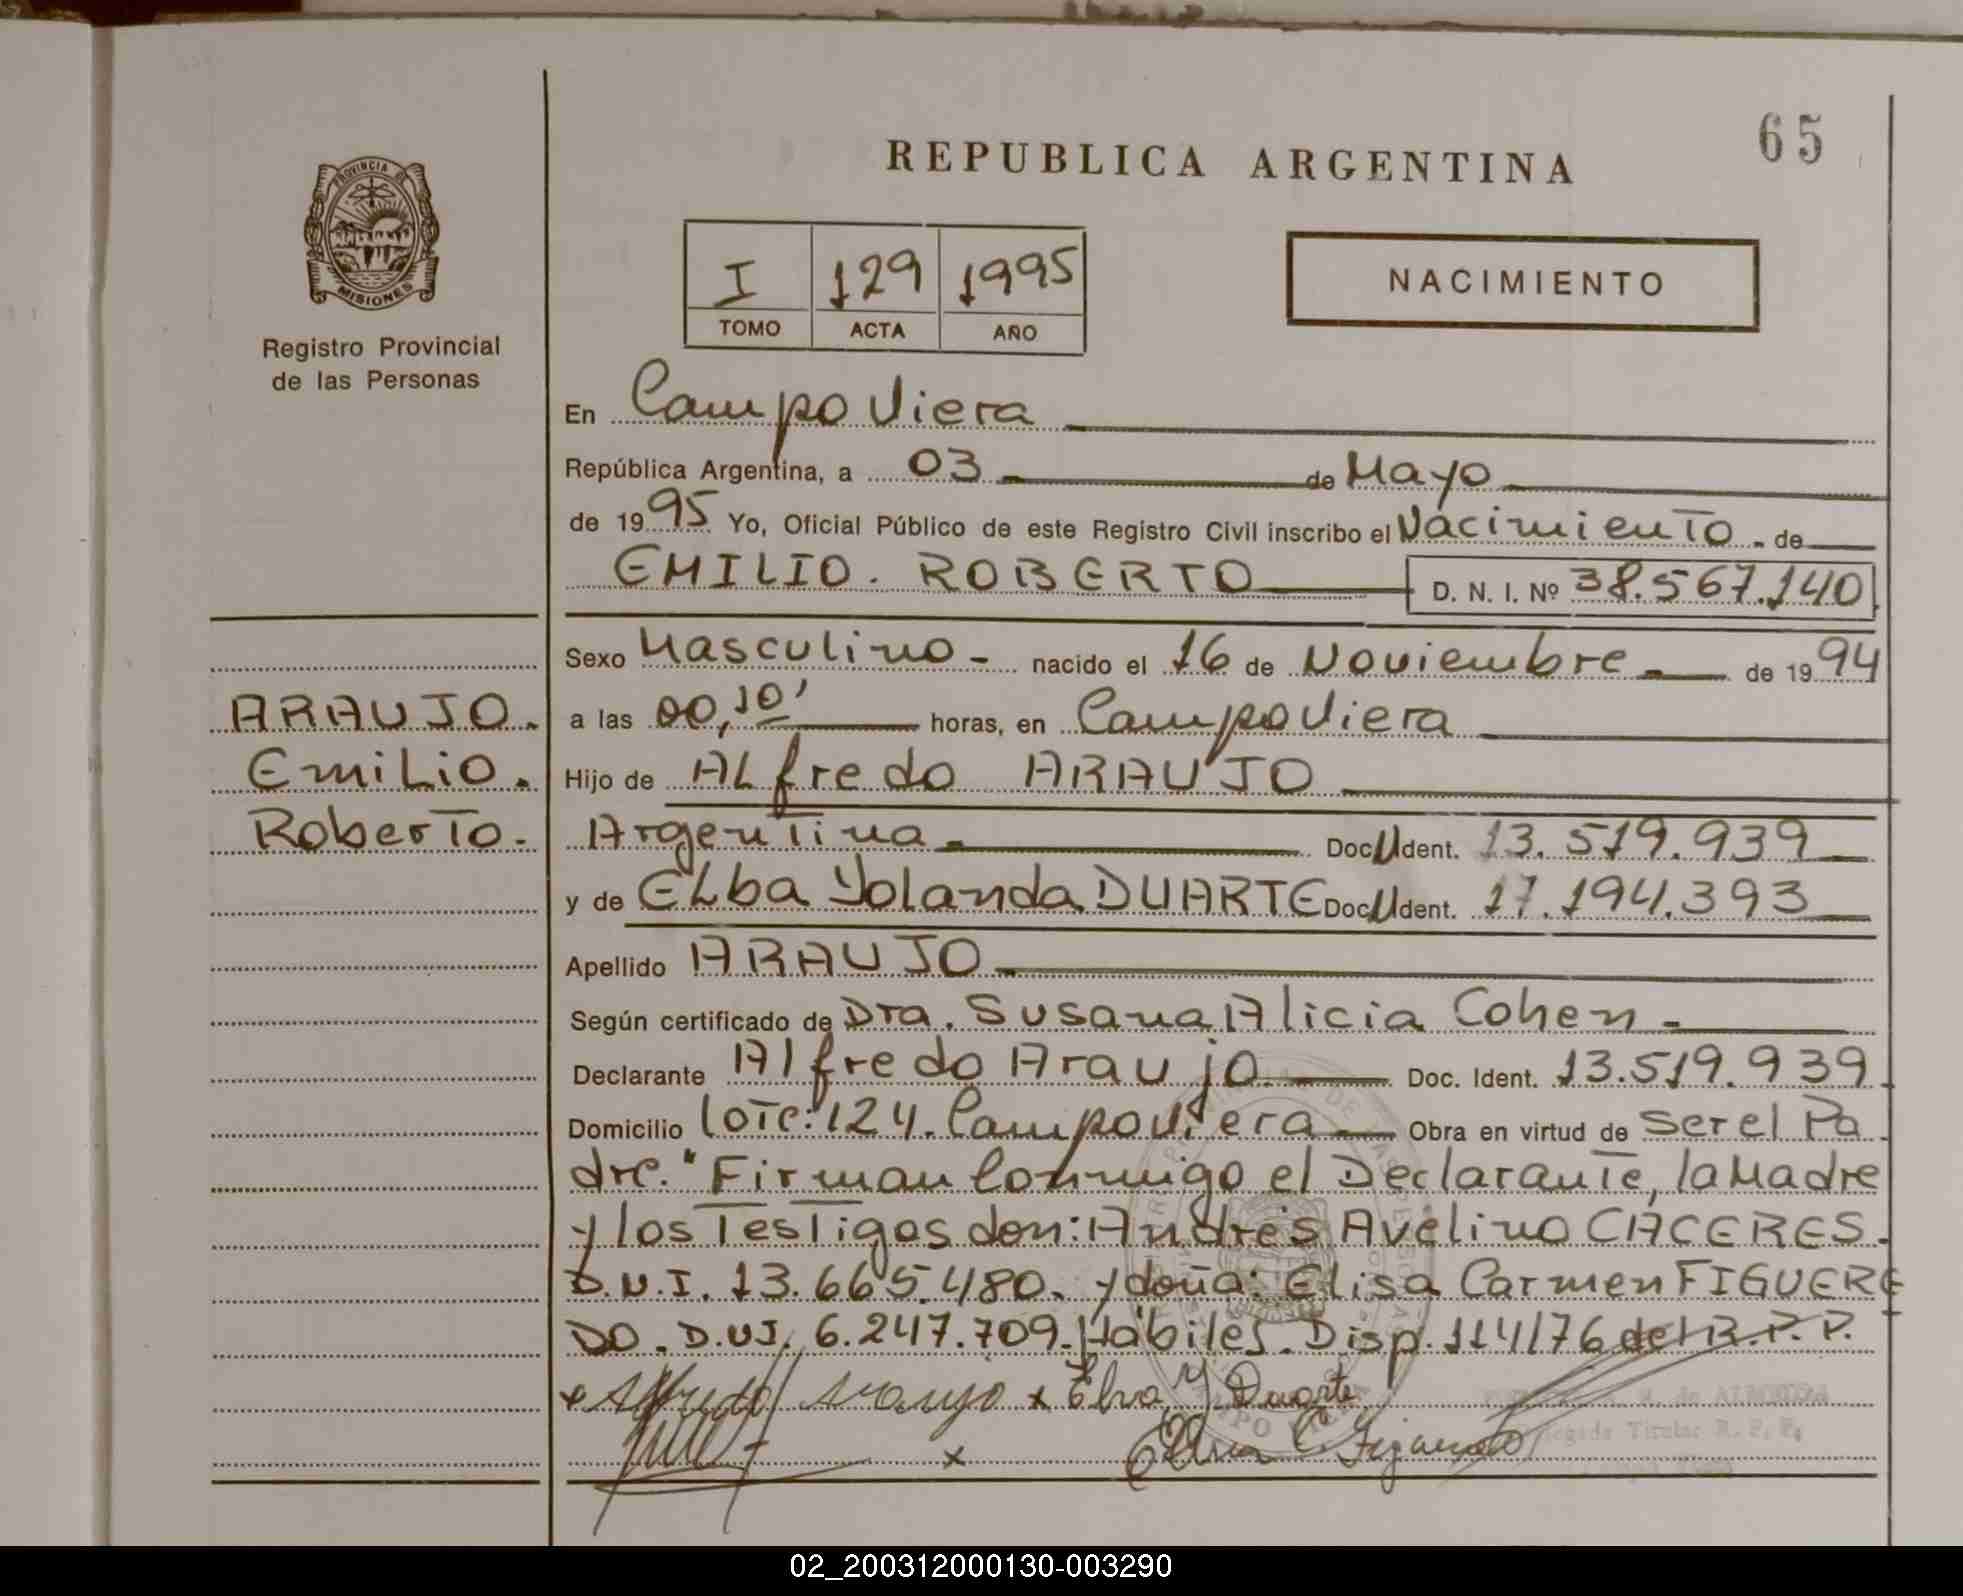 65
REPUBLICA ARGENTINA
PROVINCIA DE
MISIONES
Registro Provincial
de las Personas
I 129 1995
TOMO ACTA AÑO
NACIMIENTO
En Campo Viera
República Argentina, a 03 de Mayo
de 1995 Yo, Oficial Público de este Registro Civil inscribo el Nacimiento. de
EMILIO. ROBERTO D. N. I. Nº 38.567.140
Sexo Masculino- nacido el 16 de Noviembre de 1994
ARAUJO.
a las 00,10' horas, en Campo Viera
Emilio.
Hijo de ALfredo ARAUJO
Roberto.
Argentina. Doc. Ident. 13.519.939
y de ELba Yolanda DUARTE Doc. Ident. 17.194.393
Apellido ARAUJO
Según certificado de Dra. Susana Alicia Cohen-
Declarante Alfredo Araujo. Doc. Ident. 13.519.939
Domicilio lote: 124. Campo Viera Obra en virtud de ser el Pa
dre." Firman Conmigo el Declarante, la Madre
y los Testigos don: Andrés Avelino CACERES.
D.N.I. 13.665.480. y doña: Elisa Carmen FIGUERE
DO. D.N.I. 6.247.709. Hábiles. Disp. 114/76 del R.P.P.
x Alfredo Araujo x Elva Y Duarte
x
Titular R. P. P.
02_200312000130-003290